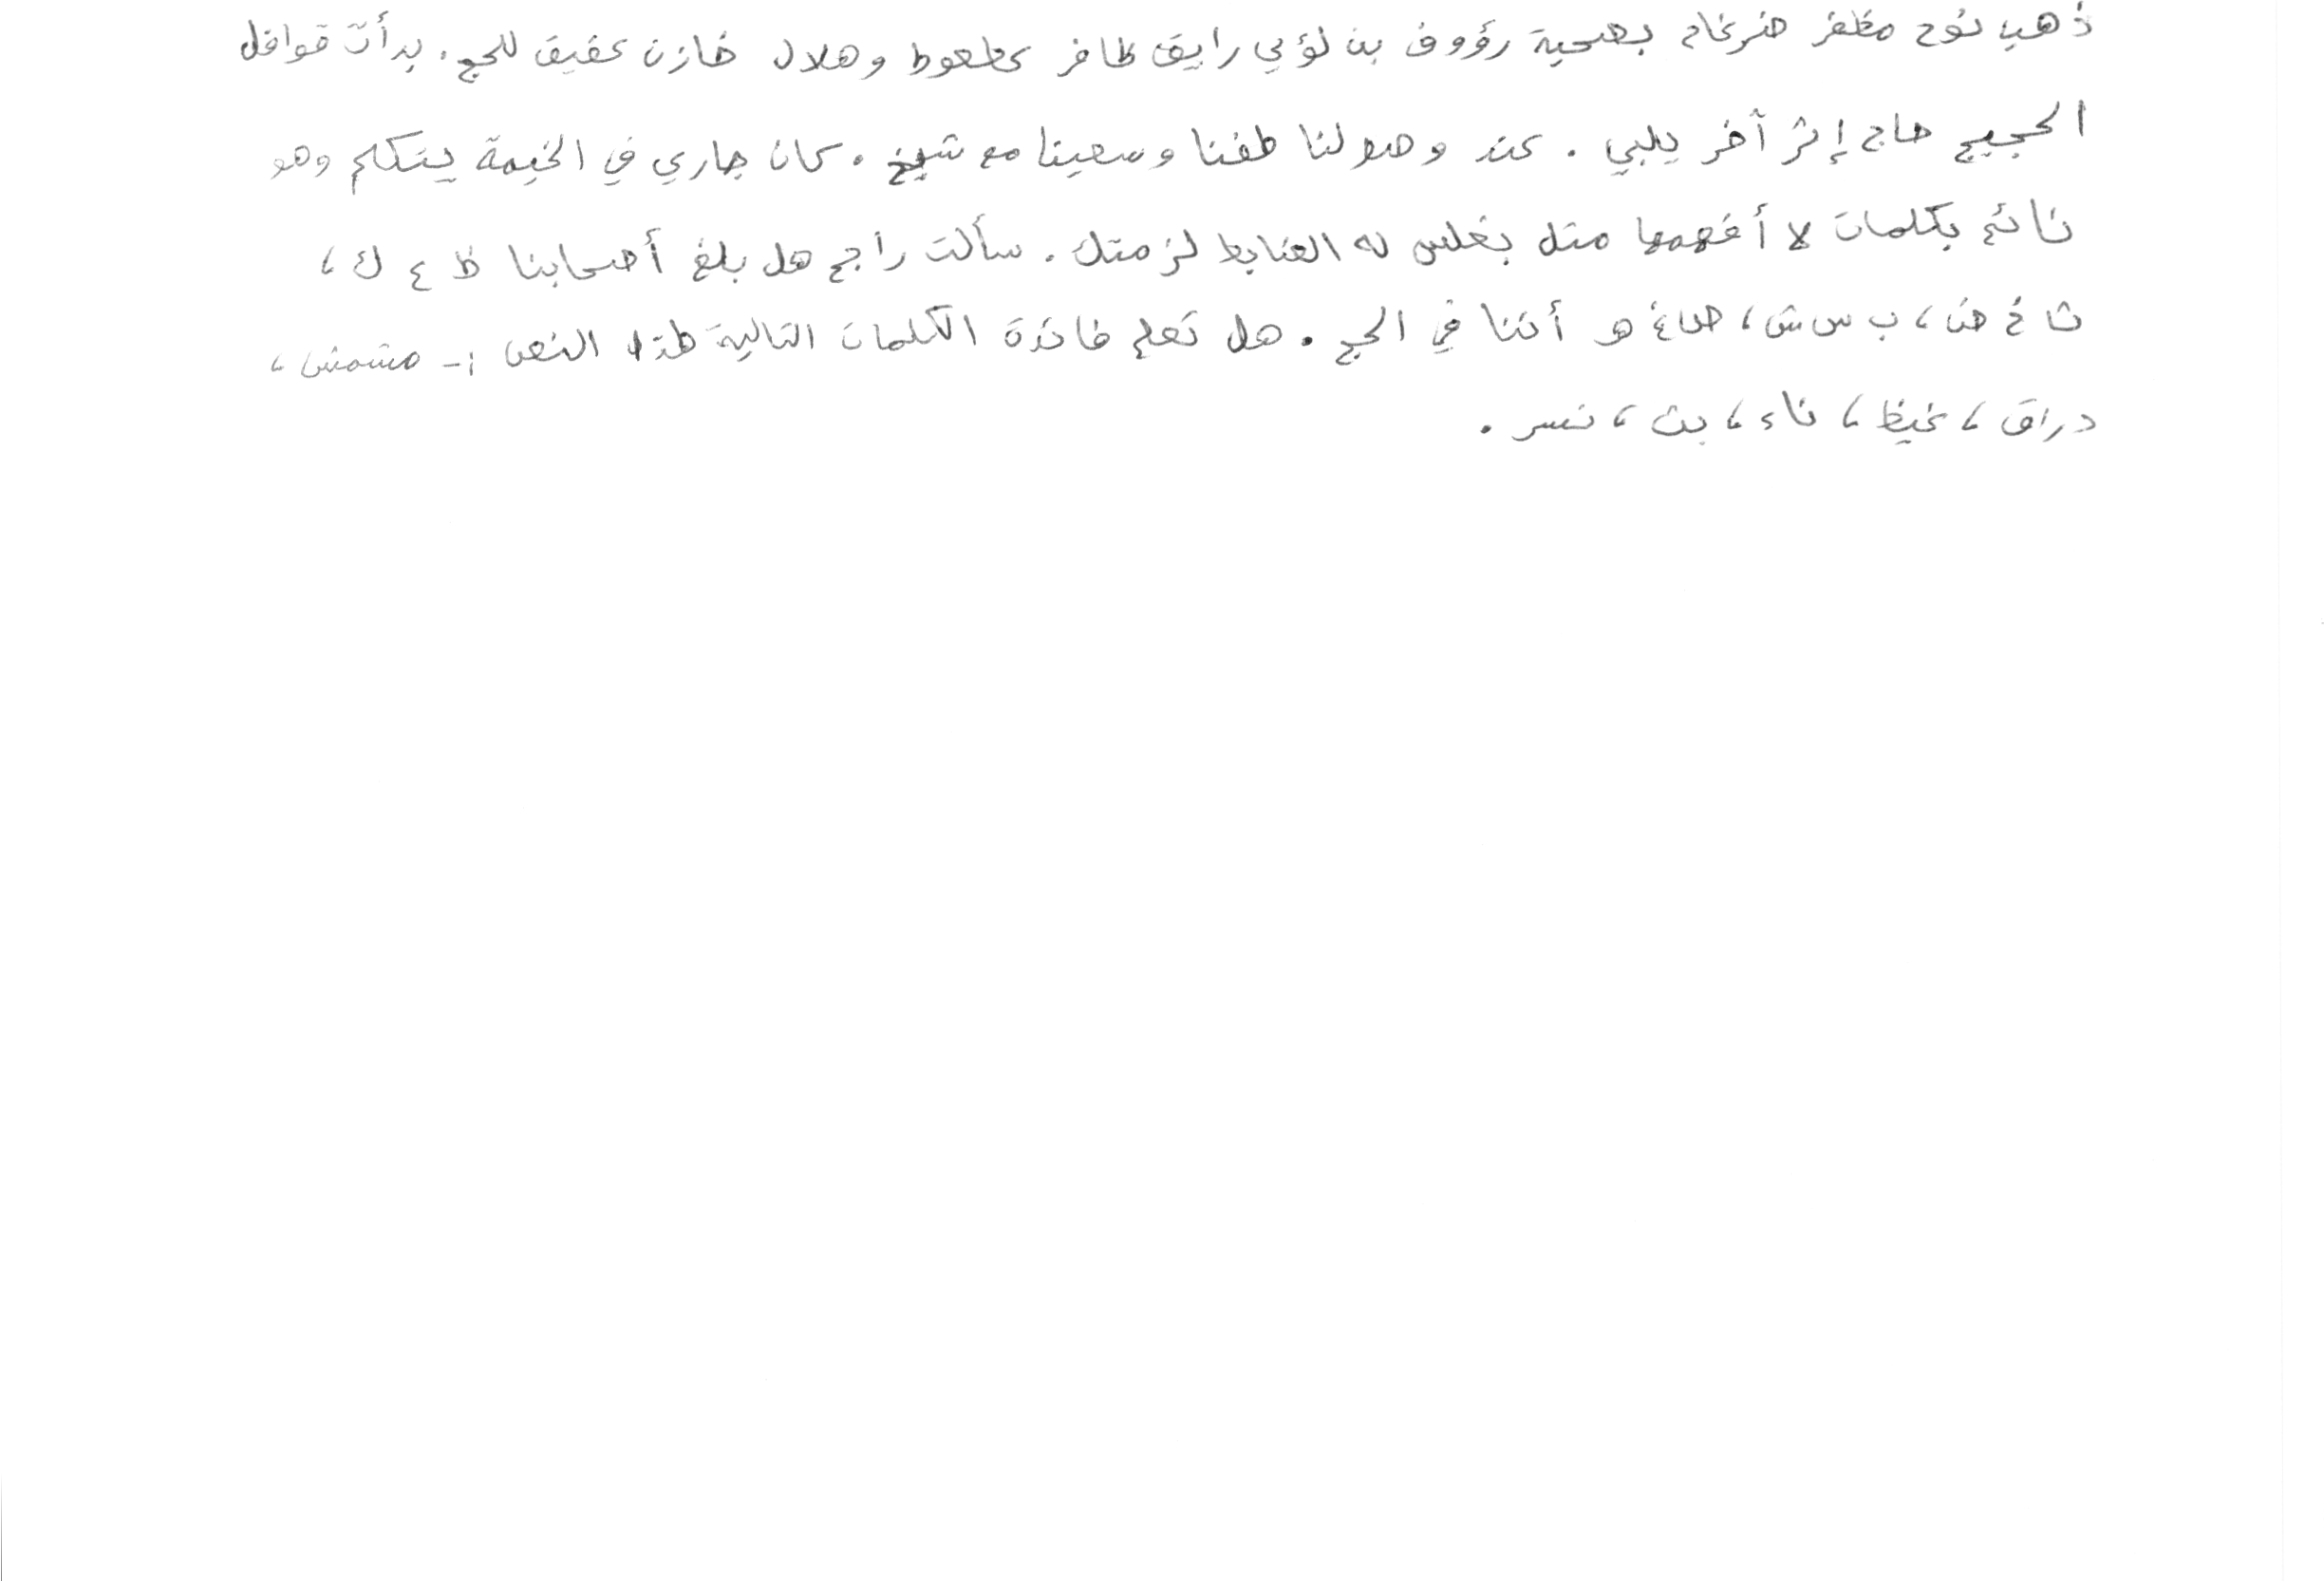 ذهب نوح مظفر ضرغام بصحبة رؤوف بن لؤي رايق ظافر عطعوط وهلال خازن عفيف للحج. بدأت قوافل
الحجيج حاج إثر آخر يلبي. عند وصولنا طفنا وسعينا مع شيخ. كان جاري في الخيمة يتكلم وهو
نائم بكلمات لا أفهمها مثل بغلس له الضابط لزمتك. سألت راجح هل بلغ أصحابنا ظ ع ك،
ث خ ض، ب س ش، ص غ هـ أننا في الحج. هل تعلم فائدة الكلمات التالية لهذا النص :- مشمش،
دراق، غيظ، ناء، بث، نسر.